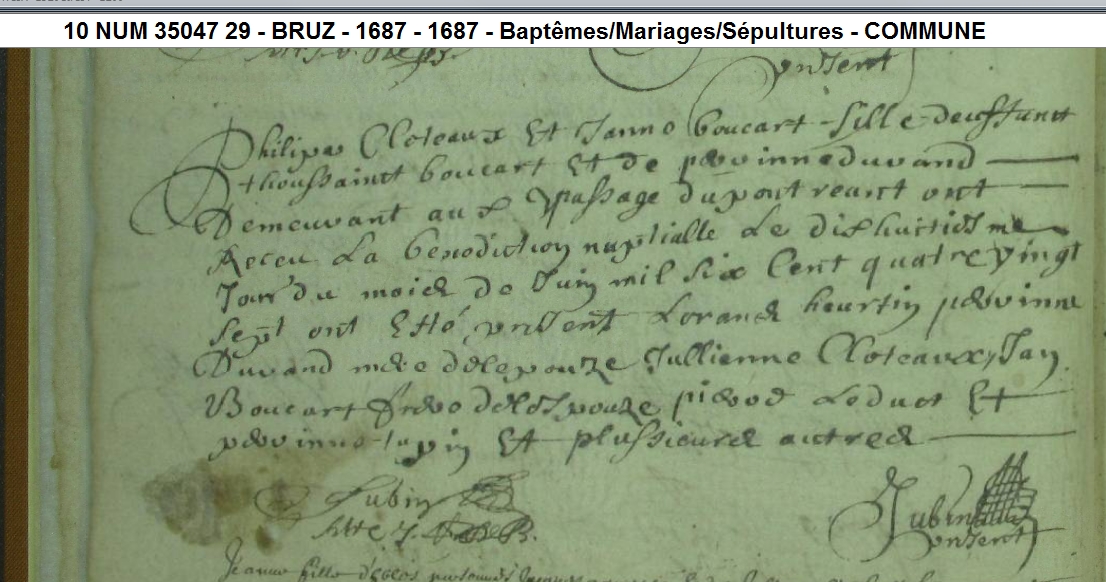 10 NUM 35047 29 - BRUZ - 1687 - 1687 - Baptêmes/Mariages/Sépultures - COMMUNE
present
Philipes Cloteaux Et Janne boucart fille deuffunct
thoussainct boucart Et de perinne durand
demeurant au passage du pont reant ont
Receu La benediction nuptialle Le dixhuitiesme
Jour du mois de Juin mil six Cent quatre vingt
sept ont Esté present Lorans heurtin perinne
Durand mere delepouze Jullienne Cloteaux Jan
Boucart frere delespouze pierre Leduc Et
perinne lupin Et plussieurs autres
Jubin
Jubin
present
Jeanne fille